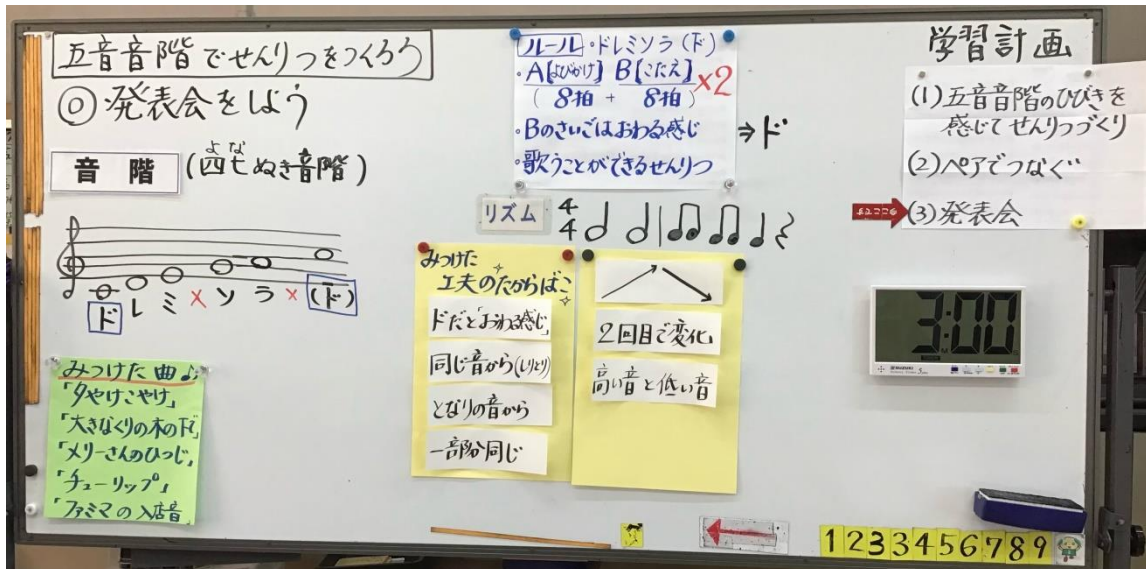 五音音階でせんりつをつくろう
◎発表会をしよう
音階
(四七ぬき音階)
よな
ド レ ミ × ソ ラ × (ド)
みつけた曲♪
「夕やけこやけ」
「大きなくりの木の下で」
「メリーさんのひつじ」
「チューリップ」
「ファミマの入店音」
ルール・ドレミソラ(ド)
・A[よびかけ] B[こたえ] ×2
(8拍 + 8拍)
・Bのさいごはおわる感じ
⇒ド
・歌うことができるせんりつ
リズム
4
4
みつけた
工夫のたからばこ
ドだと「おわる感じ」
同じ音から(しりとり)
となりの音から
一部分同じ
2回目で変化
高い音と低い音
学習計画
(1)五音音階のひびきを
感じてせんりつづくり
(2)ペアでつなぐ
(3)発表会
3:00
1 2 3 3 4 5 6 7 8 9